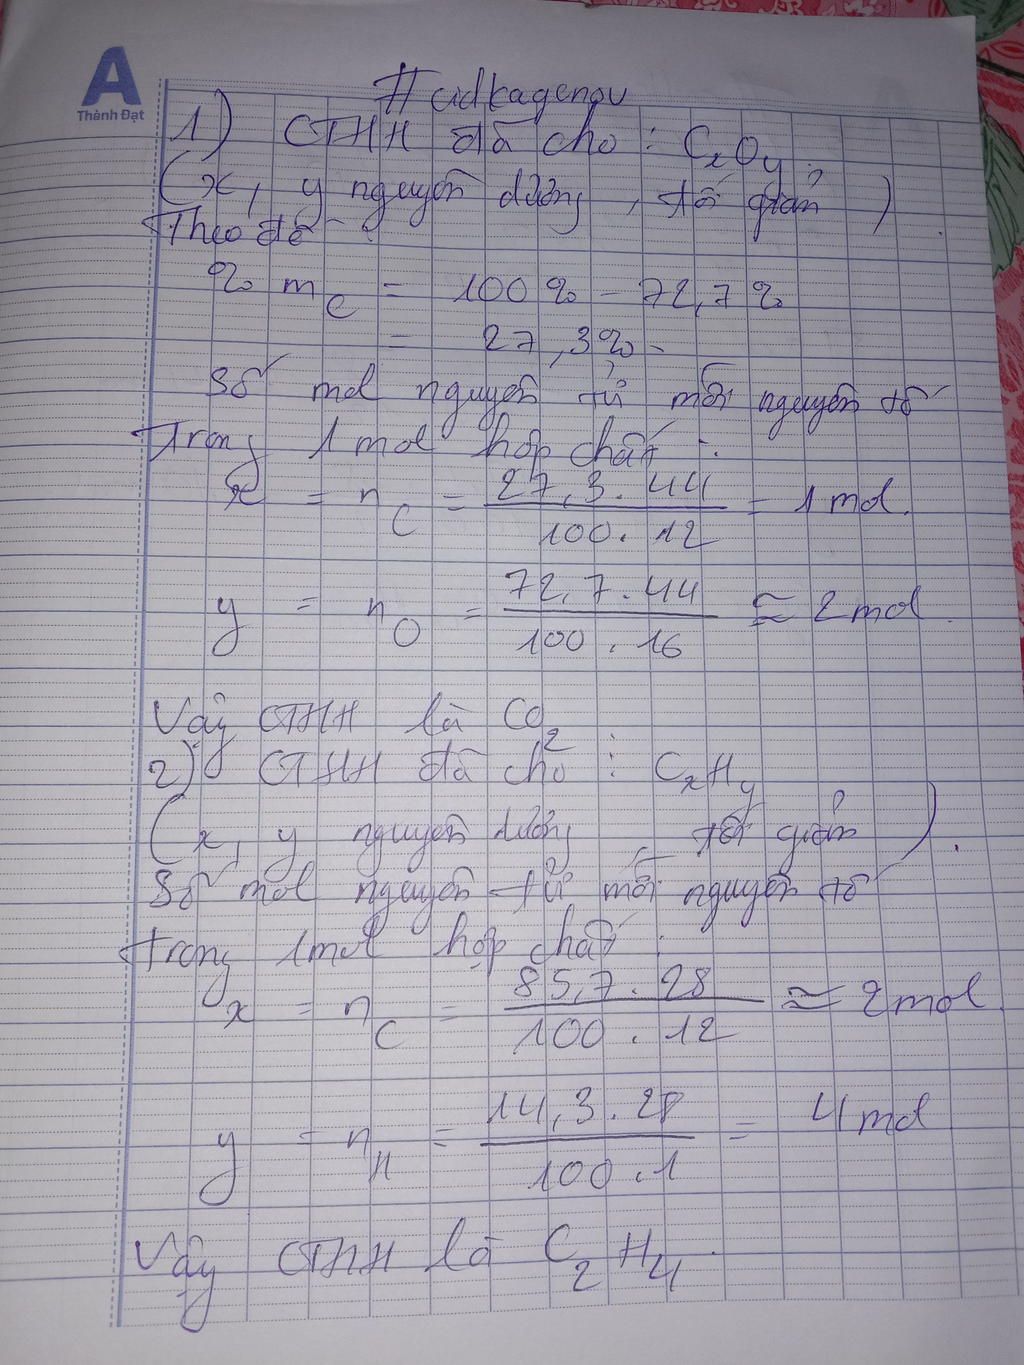 A
Thành Đạt
#cidkagenou
1) CTHH đã cho : CxOy
(x, y nguyên dương, tối giản).
Theo đề :
% mC = 100% - 72,7%
= 27,3%.
Số mol nguyên tử mỗi nguyên tố
Trong 1 mol hợp chất :
x = nC = 27,3.44 / 100.12 = 1 mol.
y = nO = 72,7.44 / 100.16 ≈ 2 mol.
Vậy CTHH là CO2
2) CTHH đã cho : CxHy
(x, y nguyên dương, tối giản).
Số mol nguyên tử mỗi nguyên tố
Trong 1 mol hợp chất :
x = nC = 85,7.28 / 100.12 ≈ 2 mol.
y = nH = 14,3.28 / 100.1 = 4 mol
Vậy CTHH là C2H4.